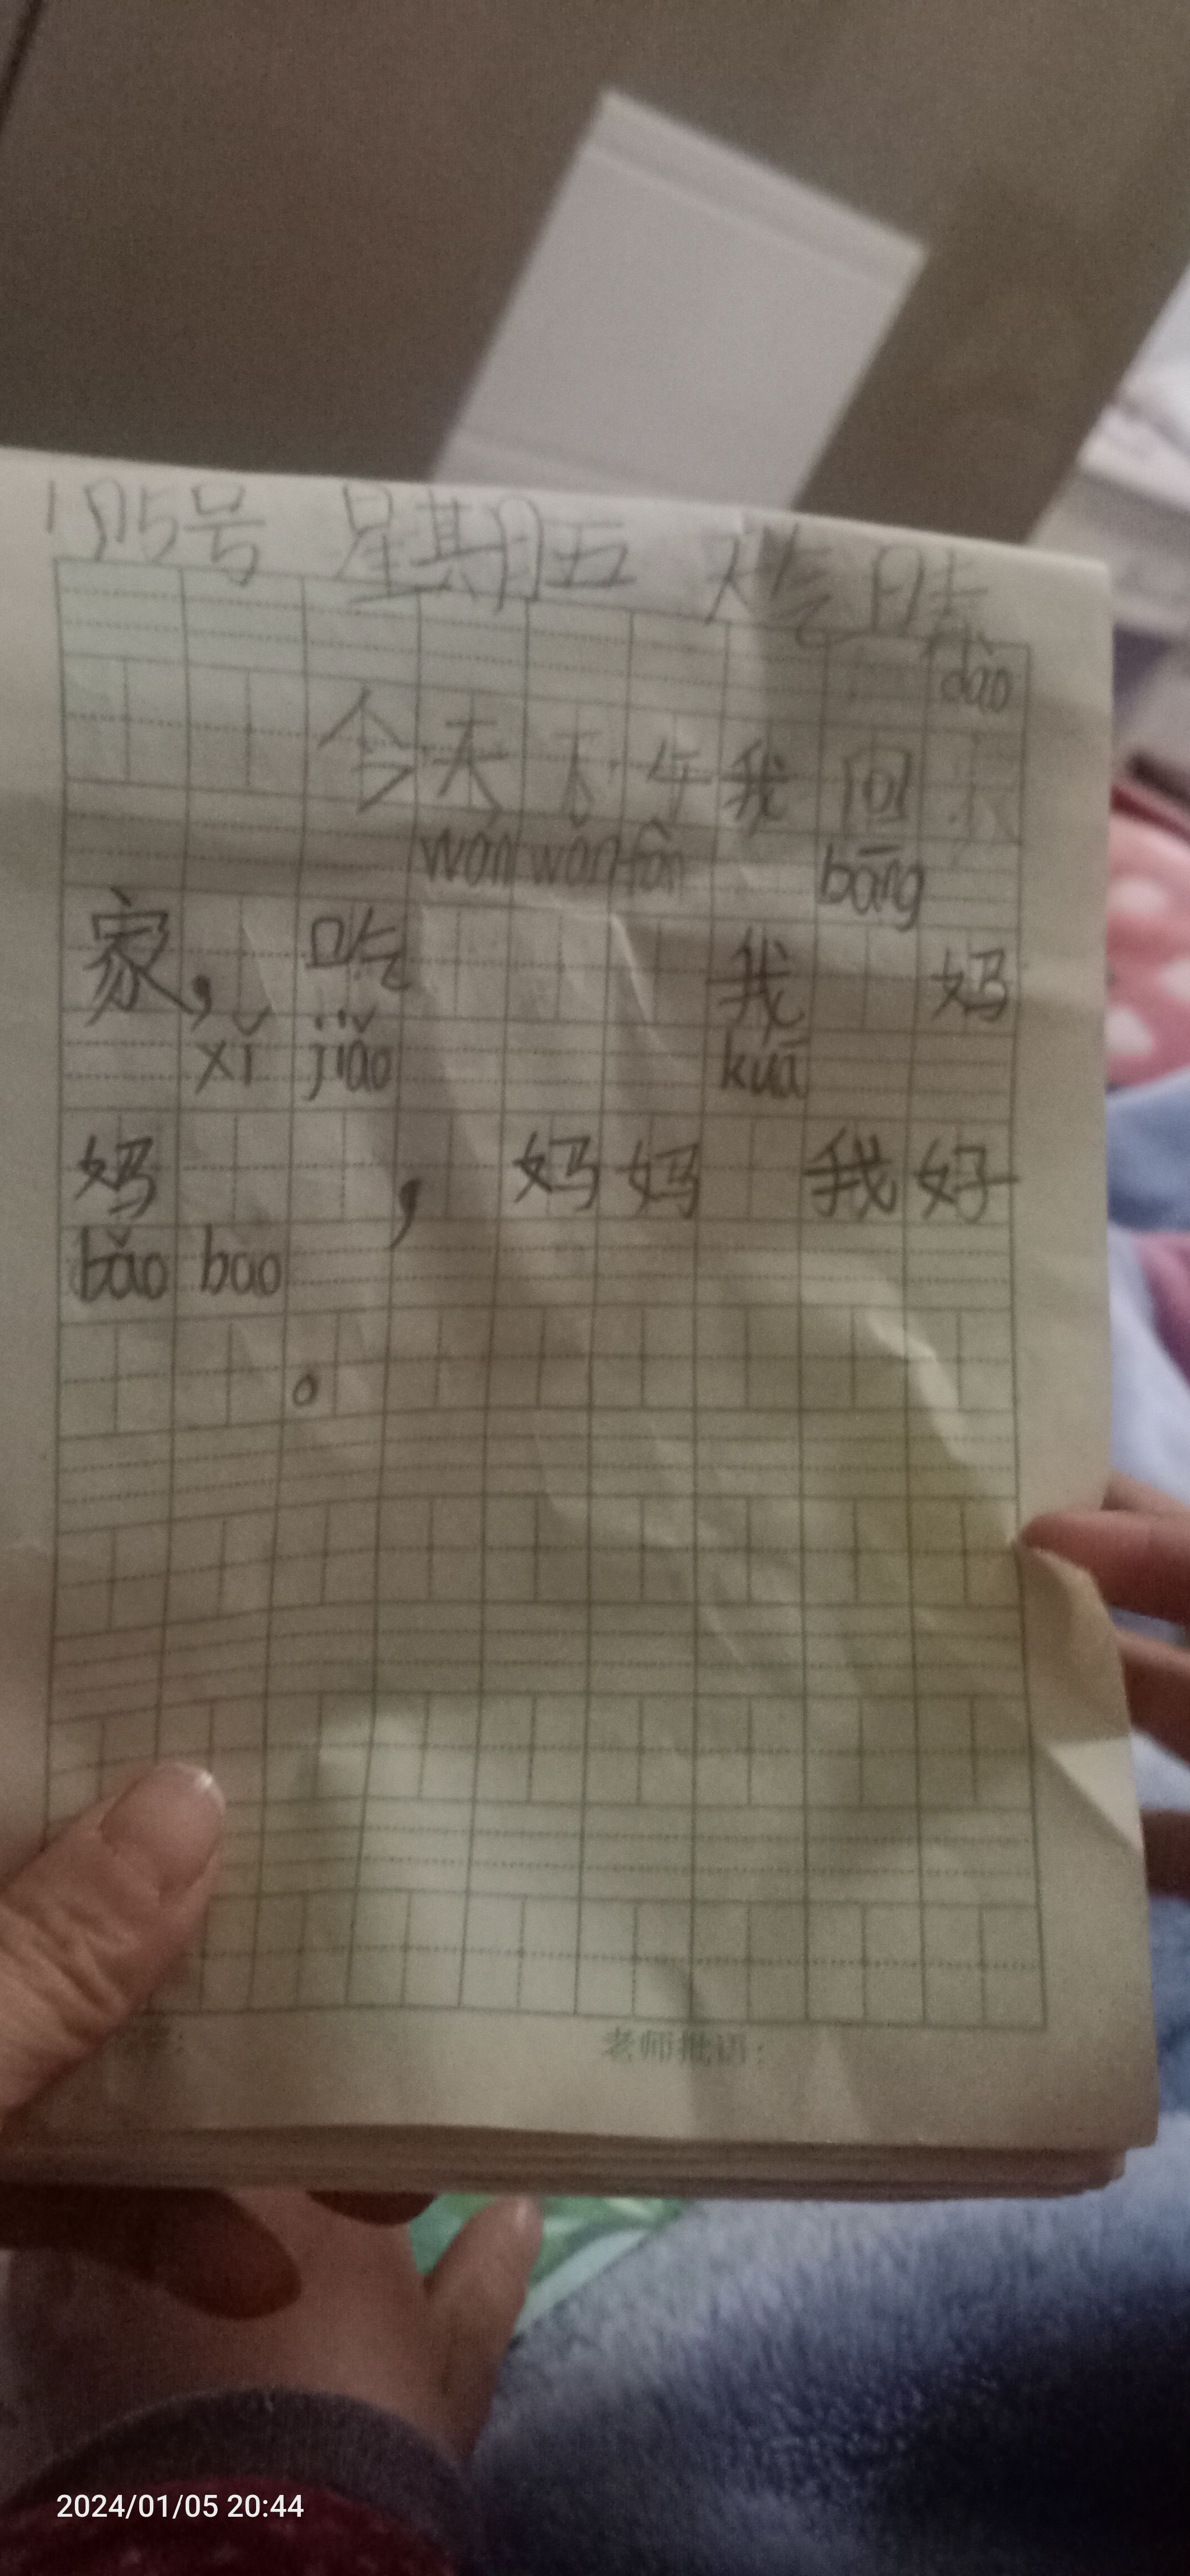 1月5号 星期五 天气 日晴
dao
今天下午我回
wán wán fàn bāng
家，吃 我 妈
xǐ jiǎo kuā
妈 ，妈妈 我好
bǎo bao
。
老师批语：
2024/01/05 20:44